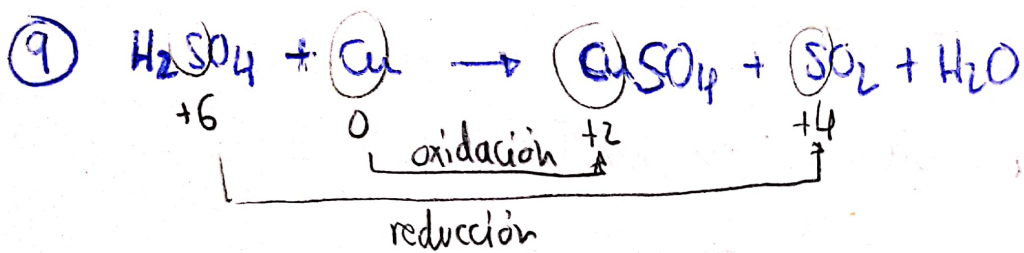 9 H2SO4 + Cu → CuSO4 + SO2 + H2O
+6 0 +2 +4
oxidación
reducción